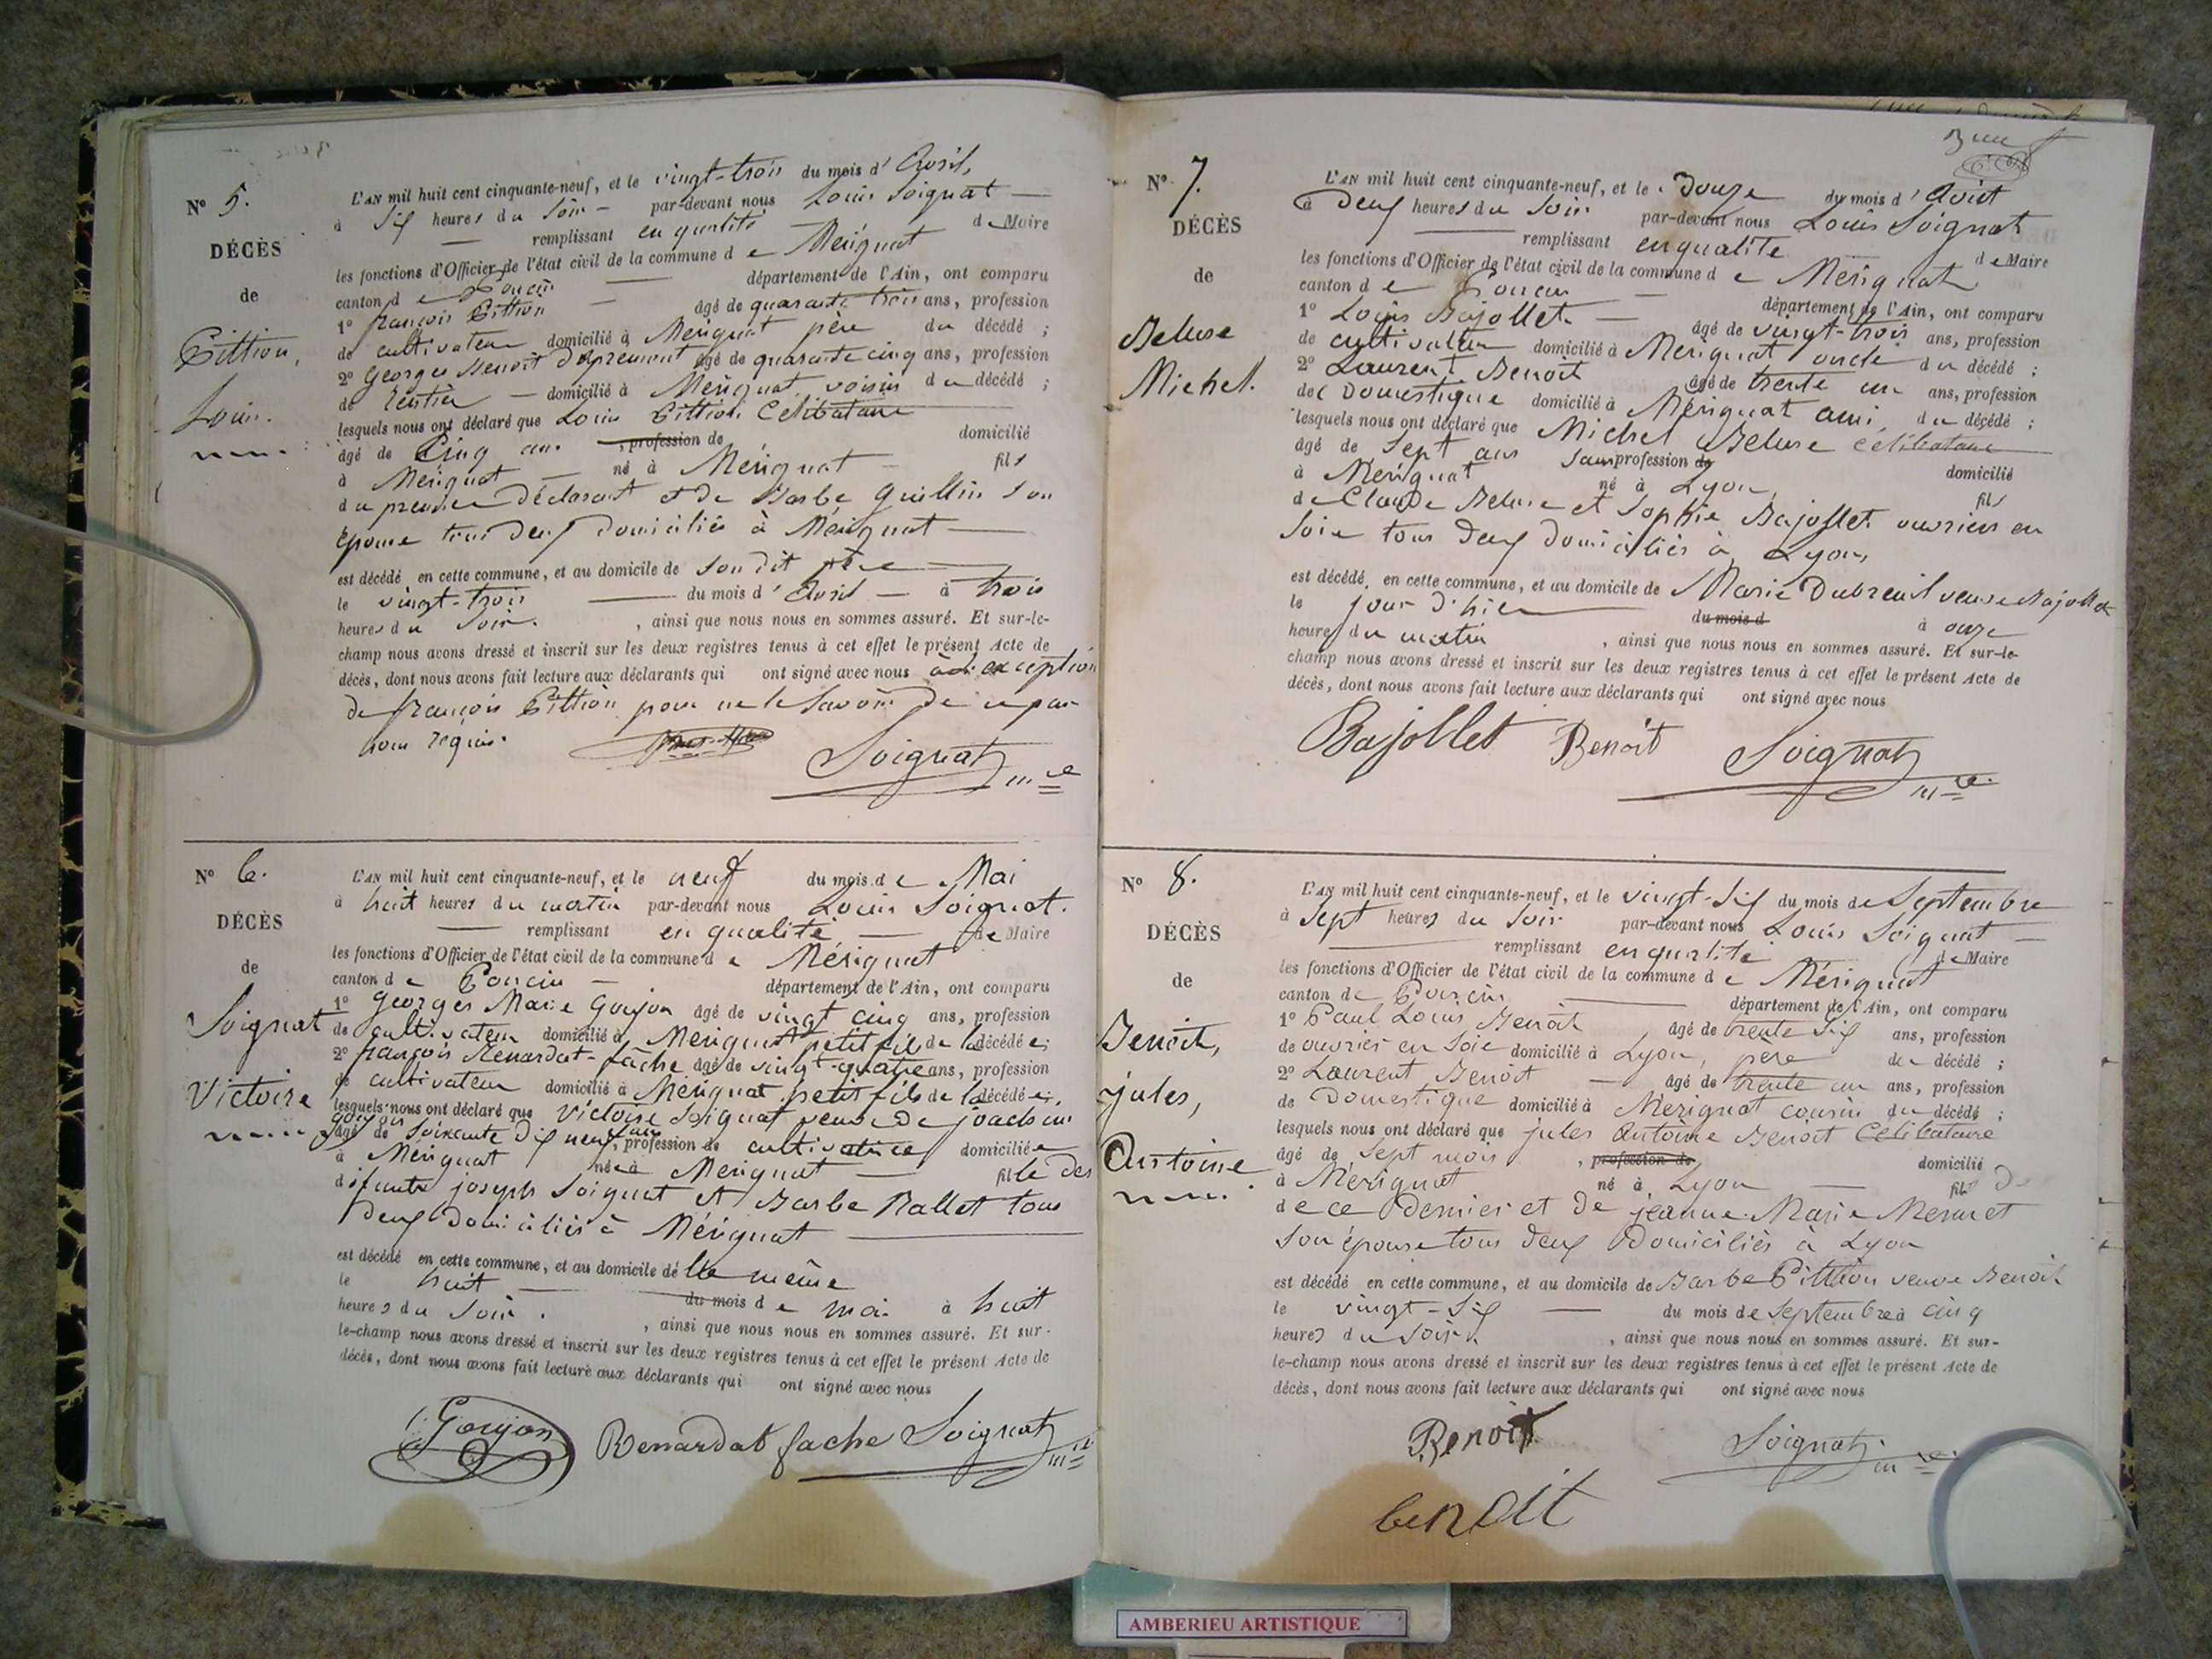 N° 5.
DÉCÈS
de
Pittion,
Louis.
L'AN mil huit cent cinquante-neuf, et le vingt-trois du mois d' Avril,
à six heures du soir par-devant nous Louis Soignat
remplissant en qualité de Maire
les fonctions d'Officier de l'état civil de la commune de Mérignat
canton de Poncin département de l'Ain, ont comparu
1° françois Pittion âgé de quarante trois ans, profession
de cultivateur domicilié à Mérignat père du décédé ;
2° Georges Benoit Dupremont âgé de quarante cinq ans, profession
de Rentier domicilié à Mérignat voisin du décédé ;
lesquels nous ont déclaré que Louis Pittion Célibataire
âgé de Cinq ans , profession de domicilié
à Mérignat né à Mérignat fils
du premier déclarant et de Barbe Guillin son
épouse tous deux domiciliés à Mérignat
est décédé en cette commune, et au domicile de son dit père
le vingt-trois du mois d'Avril à trois
heures du soir. , ainsi que nous nous en sommes assuré. Et sur-le-
champ nous avons dressé et inscrit sur les deux registres tenus à cet effet le présent Acte de
décès, dont nous avons fait lecture aux déclarants qui ont signé avec nous à l'exception
de françois Pittion pour ne le savoir de ce par
nous requis.
Soignat mre
N° 6.
DÉCÈS
de
Soignat
Victoire
L'AN mil huit cent cinquante-neuf, et le neuf du mois de Mai
à huit heures du matin par-devant nous Louis Soignat.
remplissant en qualité de Maire
les fonctions d'Officier de l'état civil de la commune de Mérignat
canton de Poncin département de l'Ain, ont comparu
1° Georges Marie Goujon âgé de vingt cinq ans, profession
de cultivateur domicilié à Mérignat petit fils de la décédée;
2° françois Renardat-fâche âgé de vingt-quatre ans, profession
de cultivateur domicilié à Mérignat petit fils de la décédée,
lesquels nous ont déclaré que Victoire Soignat veuve de joachim
goujon
âgé de soixante dix neuf ans, profession de cultivatrice domiciliée
à Mérignat née à Mérignat fille des
défunts joseph Soignat et Barbe Rallet tous
deux domiciliés à Mérignat
est décédé en cette commune, et au domicile de lle même
le huit du mois de mai à huit
heures du soir. , ainsi que nous nous en sommes assuré. Et sur-
le-champ nous avons dressé et inscrit sur les deux registres tenus à cet effet le présent Acte de
décès, dont nous avons fait lecture aux déclarants qui ont signé avec nous
Goujon Renardat fache Soignat mre
N° 7.
DÉCÈS
de
Beluse
Michel.
L'AN mil huit cent cinquante-neuf, et le Douze du mois d'Août
à Deux heures du soir par-devant nous Louis Soignat
remplissant en qualité de Maire
les fonctions d'Officier de l'état civil de la commune de Mérignat
canton de Poncin département de l'Ain, ont comparu
1° Louis Bajollet âgé de vingt-trois ans, profession
de cultivateur domicilié à Mérignat oncle du décédé ;
2° Laurent Benoit âgé de trente un ans, profession
de Domestique domicilié à Mérignat ami du décédé ;
lesquels nous ont déclaré que Michel Beluse célibataire
âgé de sept ans sans profession de domicilié
à Mérignat né à Lyon, fils
de Claude Beluse et Sophie Bajollet ouvriers en
soie tous deux domiciliés à Lyon,
est décédé en cette commune, et au domicile de Marie Dubreuil veuve Bajollet
le jour d'hier du mois d à onze
heures du matin , ainsi que nous nous en sommes assuré. Et sur-le-
champ nous avons dressé et inscrit sur les deux registres tenus à cet effet le présent Acte de
décès, dont nous avons fait lecture aux déclarants qui ont signé avec nous
Bajollet Benoit Soignat mre
N° 8.
DÉCÈS
de
Benoit,
jules,
Antoine
L'AN mil huit cent cinquante-neuf, et le vingt-six du mois de Septembre
à sept heures du soir par-devant nous Louis Soignat
remplissant en qualité de Maire
les fonctions d'Officier de l'état civil de la commune de Mérignat
canton de Poncin département de l'Ain, ont comparu
1° Paul Louis Benoit âgé de trente six ans, profession
de ouvrier en soie domicilié à Lyon, père du décédé ;
2° Laurent Benoit âgé de trente un ans, profession
de Domestique domicilié à Mérignat cousin du décédé ;
lesquels nous ont déclaré que jules Antoine Benoit Célibataire
âgé de sept mois , profession de domicilié
à Mérignat né à Lyon fils
de ce dernier et de jeanne Marie Mermet
son épouse tous deux domiciliés à Lyon
est décédé en cette commune, et au domicile de Barbe Pittion veuve Benoit
le vingt-six du mois de septembre à cinq
heures du soir , ainsi que nous nous en sommes assuré. Et sur-
le-champ nous avons dressé et inscrit sur les deux registres tenus à cet effet le présent Acte de
décès, dont nous avons fait lecture aux déclarants qui ont signé avec nous
Benoit Soignat mre
benoit
AMBERIEU ARTISTIQUE